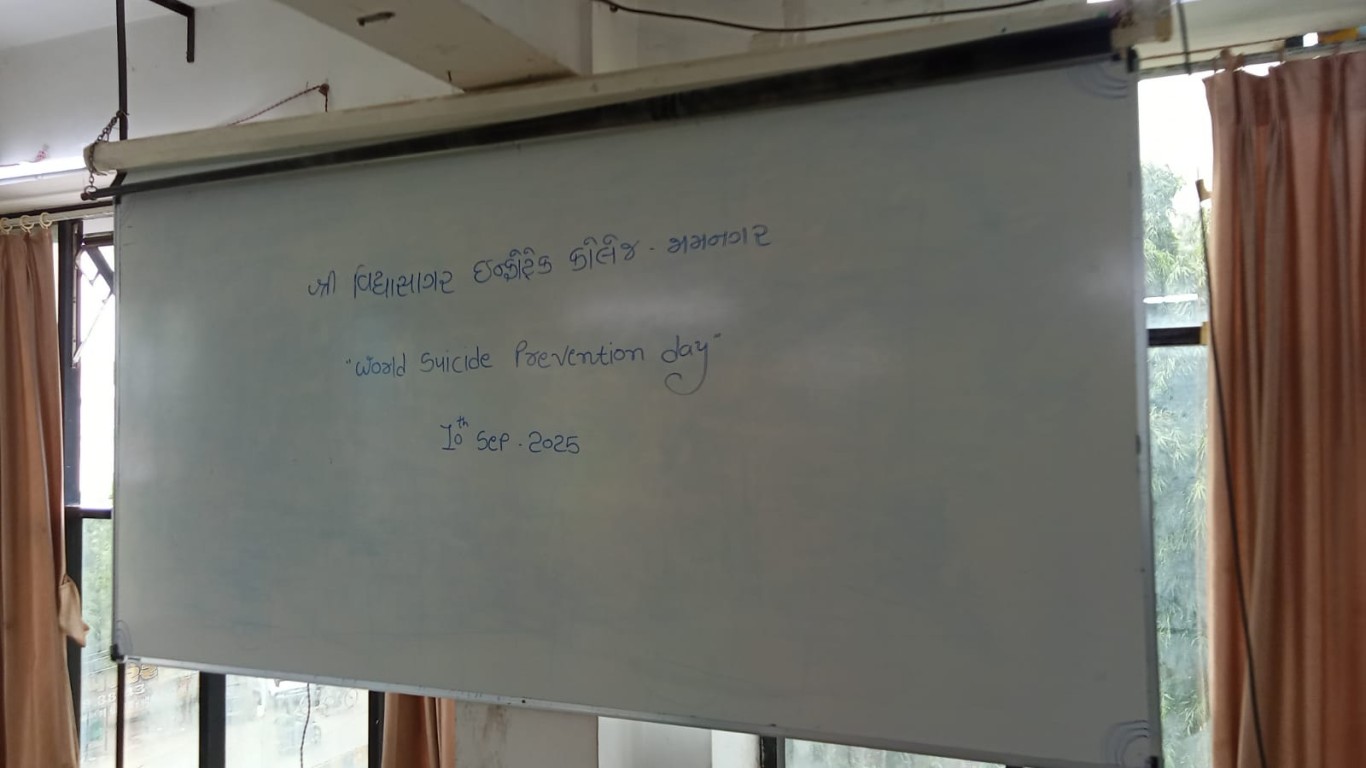 શ્રી વિદ્યાસાગર ઇન્ફોટેક કોલેજ - જામનગર
"World Suicide Prevention day"
10th Sep. 2025